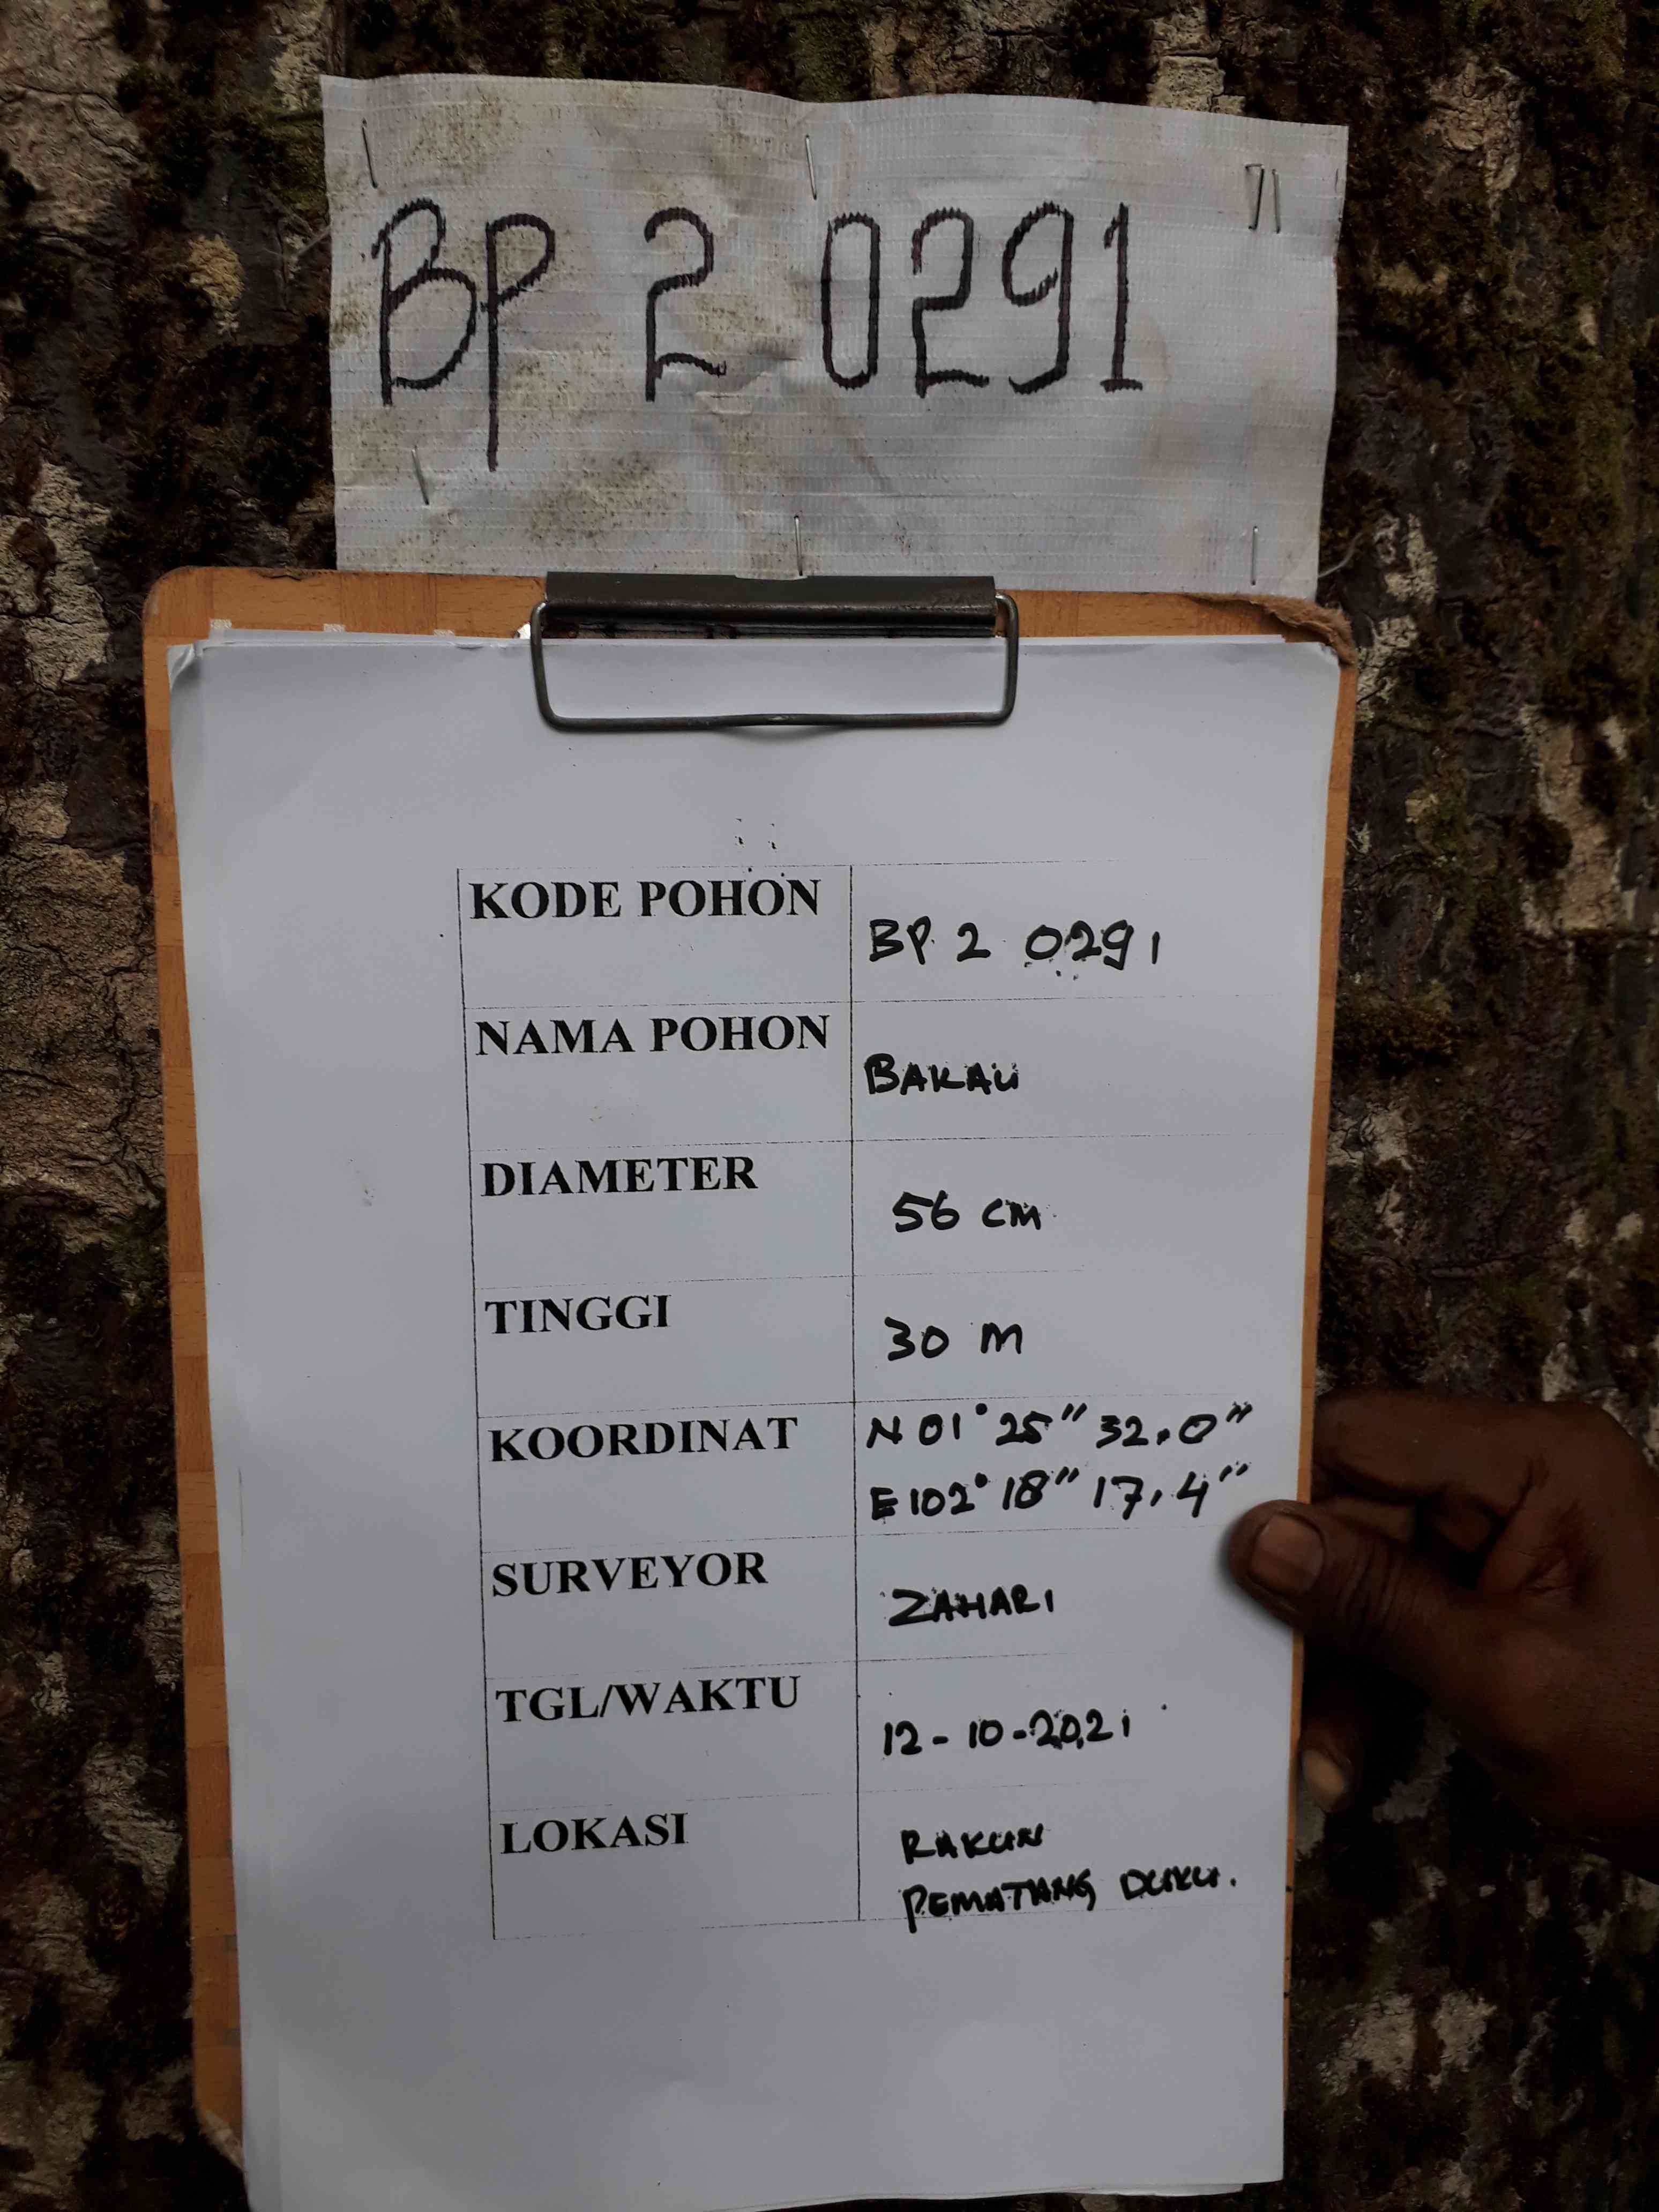 BP 2 0291
KODE POHON
BP 2 0291
NAMA POHON
BAKAU
DIAMETER
56 CM
TINGGI
30 M
KOORDINAT
N 01° 25" 32,0"
E 102° 18" 17,4"
SURVEYOR
ZAHARI
TGL/WAKTU
12-10-2021
LOKASI
RAKUN
PEMATANG DUKU.